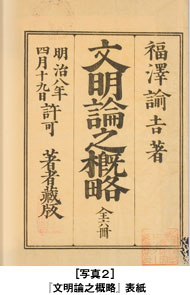 福澤諭吉著
文明論之概略 全六冊
明治八年
四月十九日許可
著者藏版
[写真2]
『文明論之概略』表紙